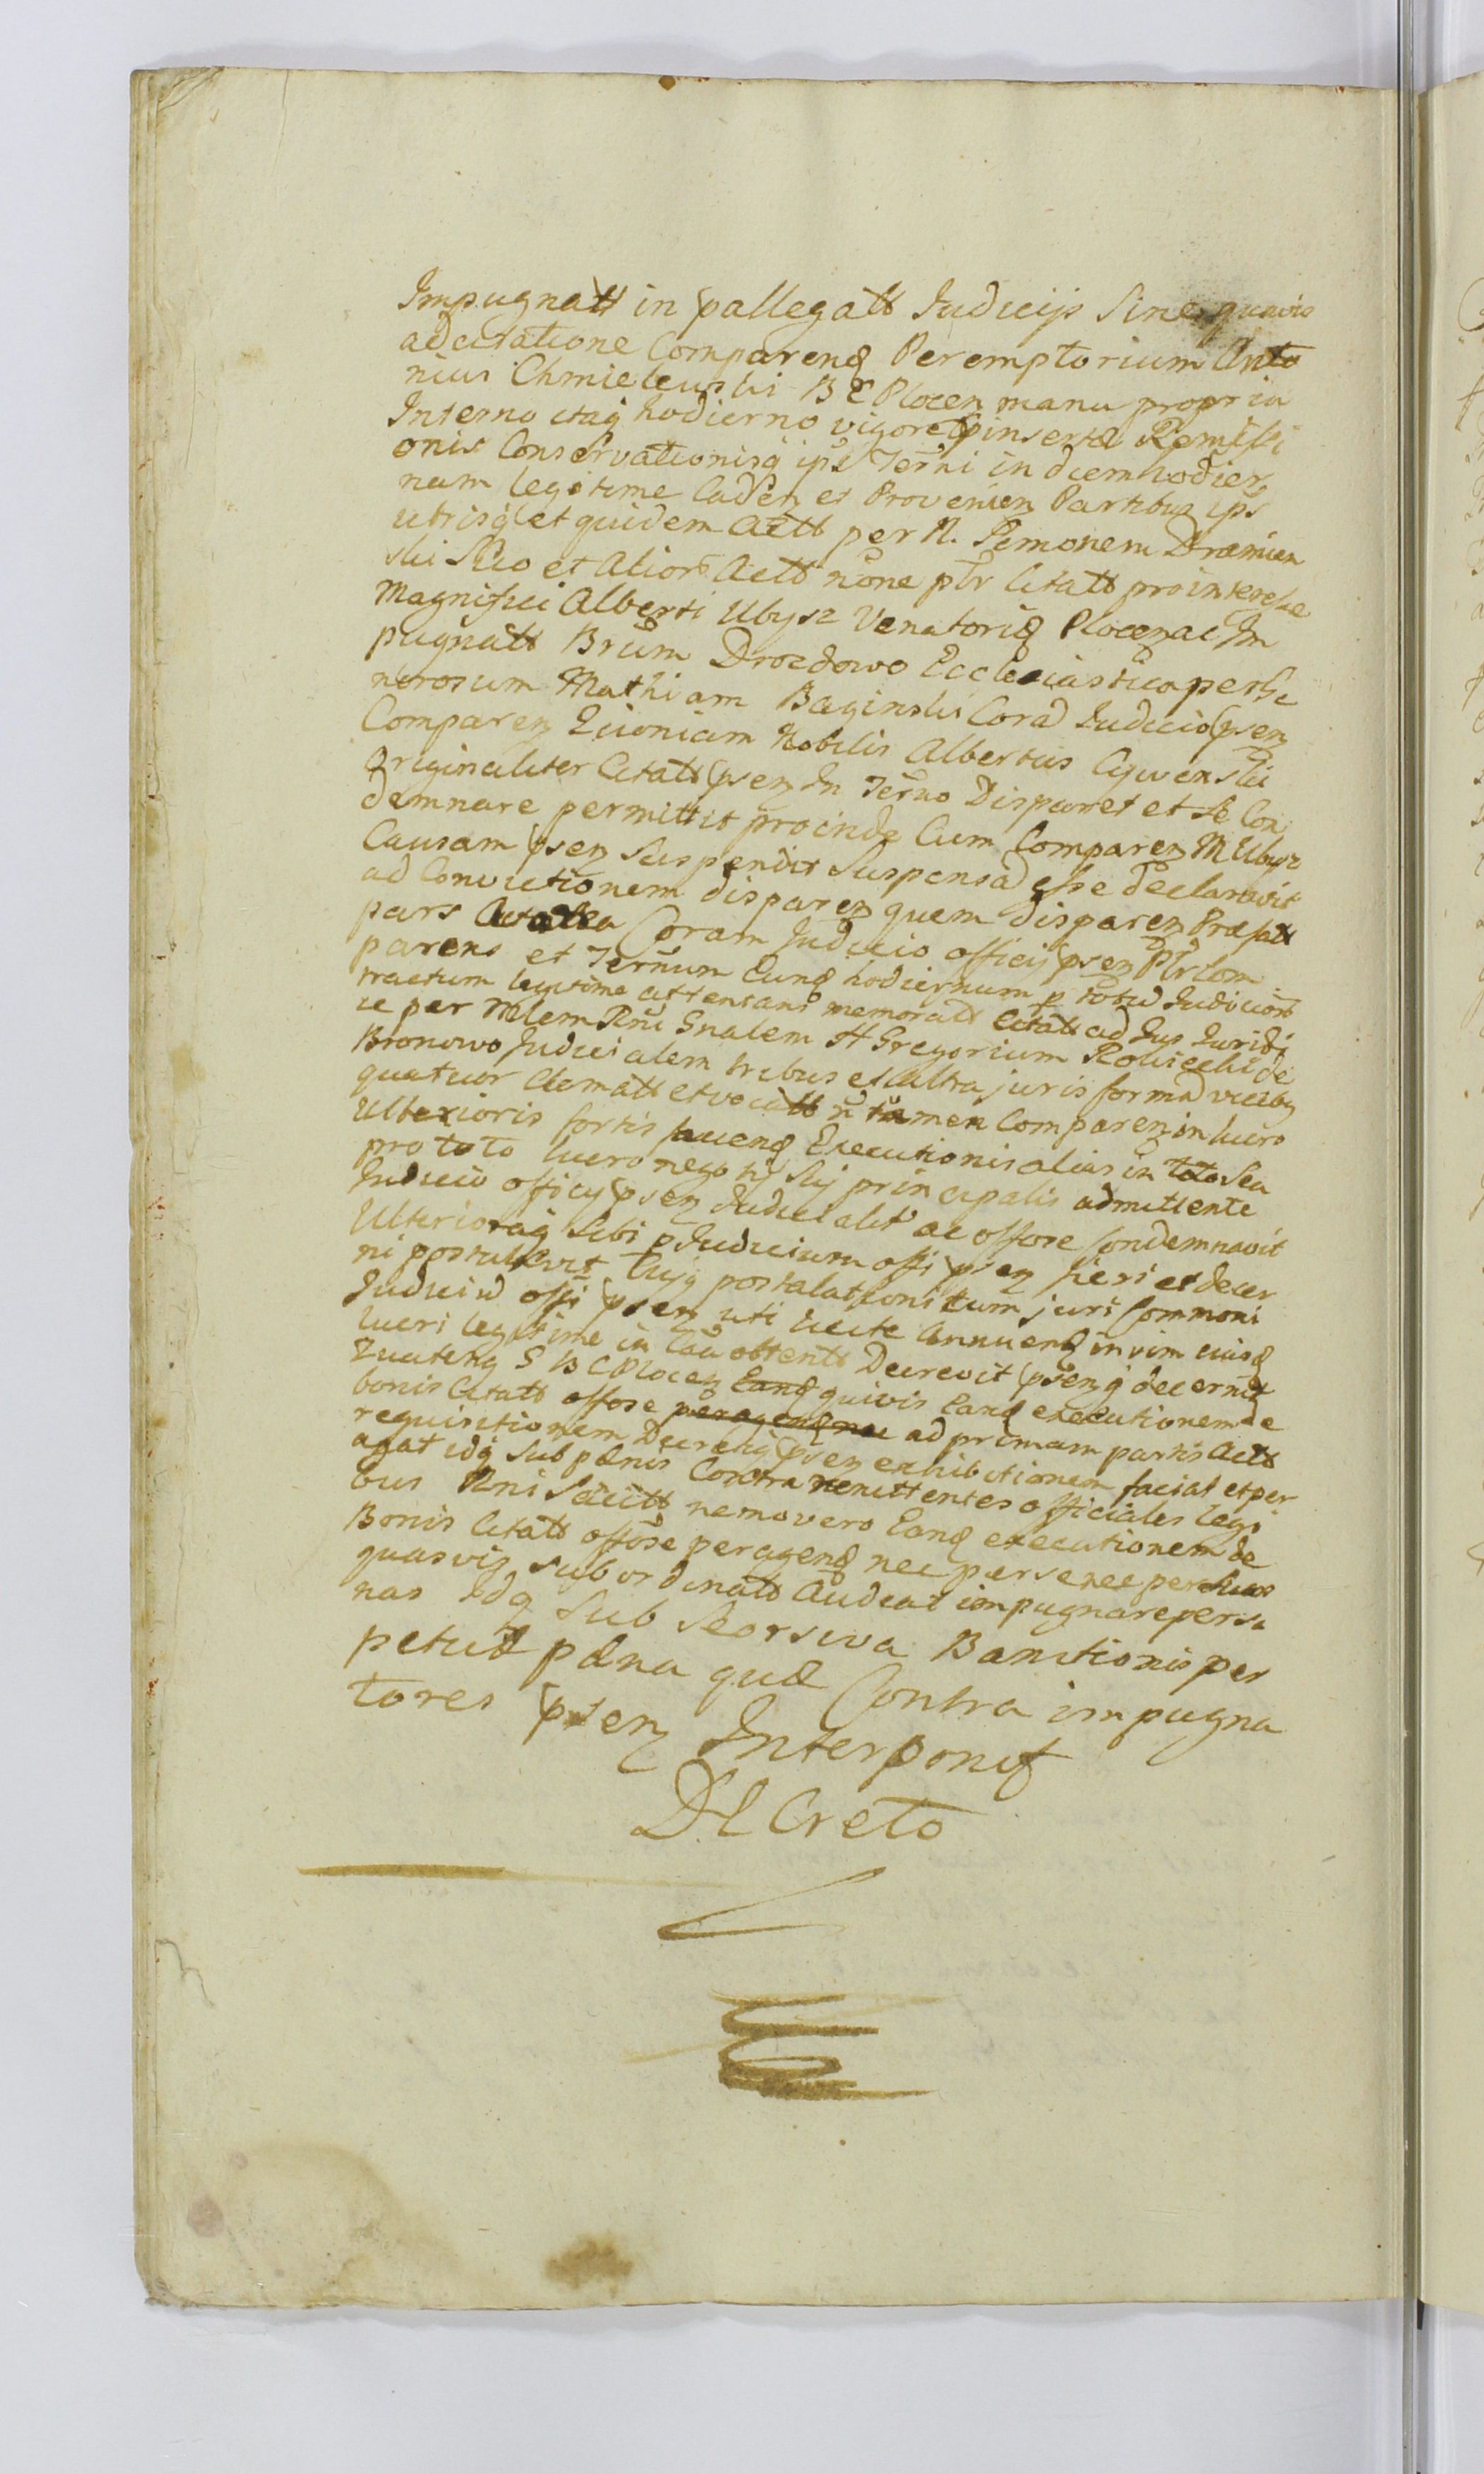 Impugnatt in pallegatt Judicijs Sine quavis
adcitatione Comparend Peremptorium Anto
nius Chmielewski B C Plocen manu propria
In termo itaq hodierno vigore pinsertæ Remissi
onis Conservationisq ipś Terni in diem hodier
num legitime Caden et Provenien Partibus ips
utrisq et quidem Actt per N. Simonem Dræmien
ski Suo et Alior Actt noñe ptr Citatt pro interesse
Magnifici Alberti Ubysz Venatorid Plocen ac Im
pugnatt Brum Drozdowo Ecclesiastica per Ge
nerosum Mathiam Baginski Corad Judicio psen
Comparen Quoniam Nobilis Albertus
Originaliter Citatt psen In Terno Disparet et se Con
demnare permittit proinde Cum Comparen M Ubysz
Causam psen Suspendit Suspensad esse declaravit
ad Convictionem disparen quem disparen Præfatt
pars Coram Judicio officij psen Ptr Com
parens et Ternum Eund hodiernum p totud Judicior
tractum legitime attentans memoratt Citatt ad Jus Juridi
ce per Mlem Rni Gnalem H Gregorium de
Bronowo Judicialem tribus et Ultra juris formā vicibq
quatuor Clamatt et vocatt ñ tamen Comparen in lucro
Ulterioris fortis faciend Executionis alias in toto seu
pro toto lucro negotij Sij principalis admittente
Judicio officij psen Judicialit ac offose Condemnavit
Ulterioraq Sibi p Judicium offi psen fieri et decer
ni postulavit Cujq postulationi tum juri Commoni
Judiciū offi psen uti licite Annuend in vim eiusd
lucri legitime in Caū obtentt Decrevit psenq decernit
Quateng S B C Plocen Eand quivis Eand executionem de
bonis Citatt offose peragend nec ad primam partis Actt
requisitionem Decretiq psen exhibitionem faciat et per
agat idq sub pænis Contra renuttentes officiales legi
bus Rni Sancitt nemo vero Eand executionem de
Bonis Citatt offose peragend nec per se nec per
quasvis subordinatt Audeat impugnare perso
nas idq Sub Seorsiva Banitionis per
petuæ pæna quæ Contra impugna
tores psen Interponit
DeCreto